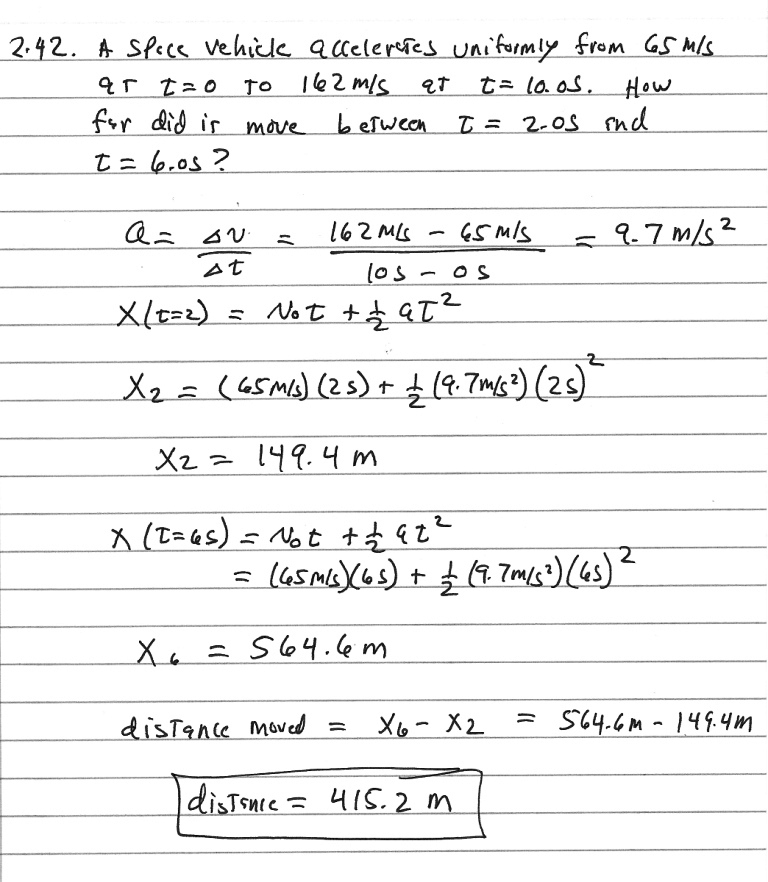 2.42. A space vehicle accelerates uniformly from 65 m/s
at t=0 to 162 m/s at t=10.0s. How
far did it move between t = 2.0s and
t = 6.0s?
a = Δv/Δt = (162 m/s - 65 m/s)/(10s - 0s) = 9.7 m/s²
X(t=2) = v₀t + ½ at²
X₂ = (65 m/s)(2s) + ½ (9.7 m/s²)(2s)²
X₂ = 149.4 m
X (t=6s) = v₀t + ½ at²
= (65 m/s)(6s) + ½ (9.7 m/s²)(6s)²
X₆ = 564.6 m
distance moved = X₆ - X₂ = 564.6m - 149.4m
distance = 415.2 m